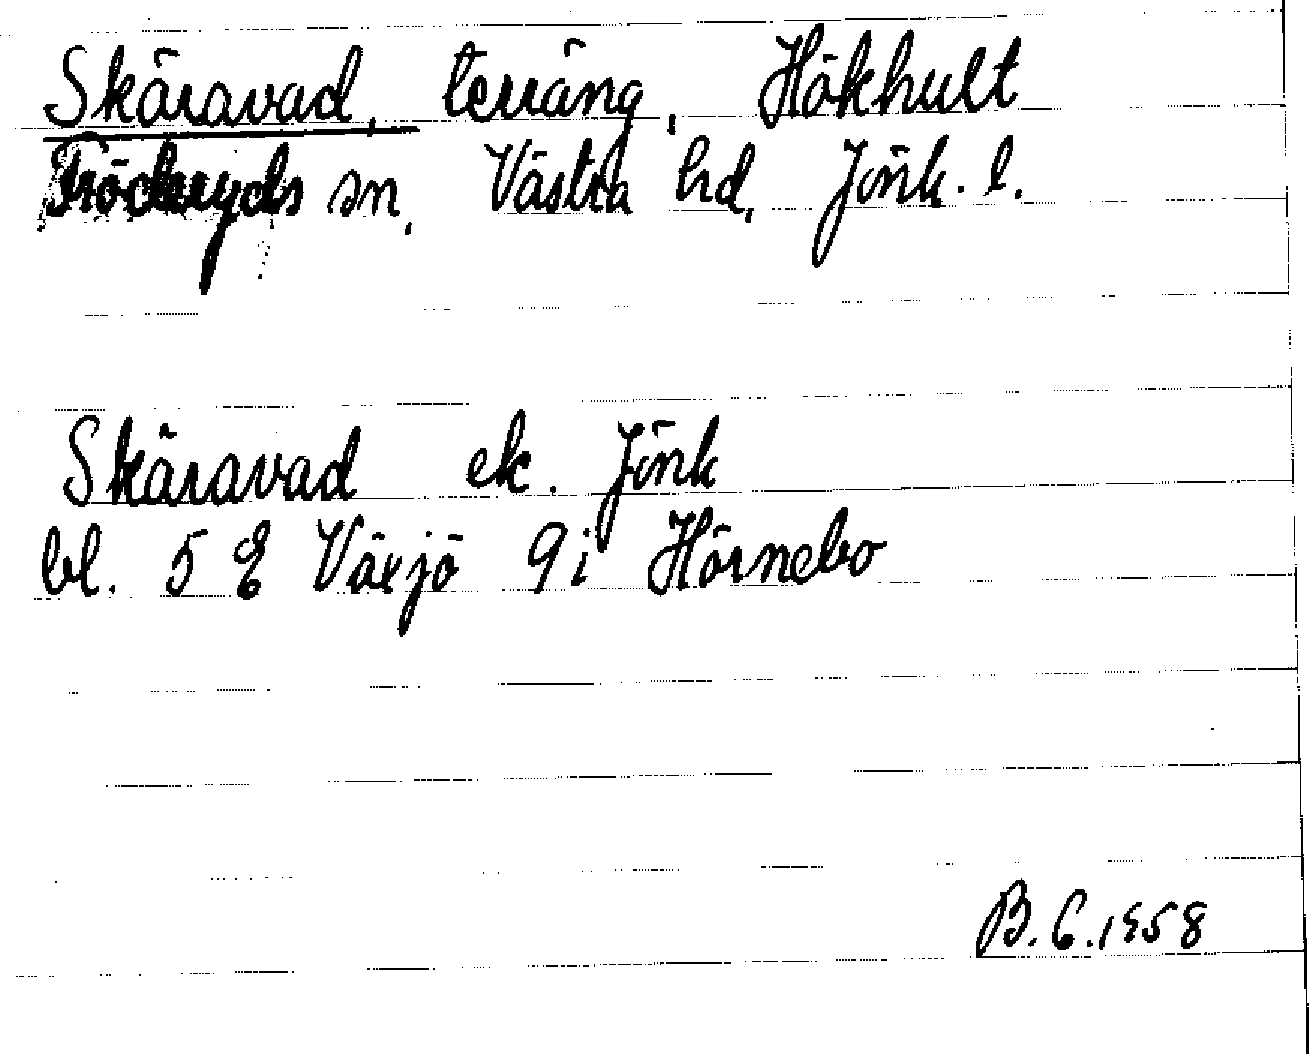 Skäravad, terräng, Hökhult
Fröderyds sn. Västra hd, Jönk. l.
Skäravad ek. Jönk
bl. 5 E Växjö 9i Hörnebo
B.G.1958